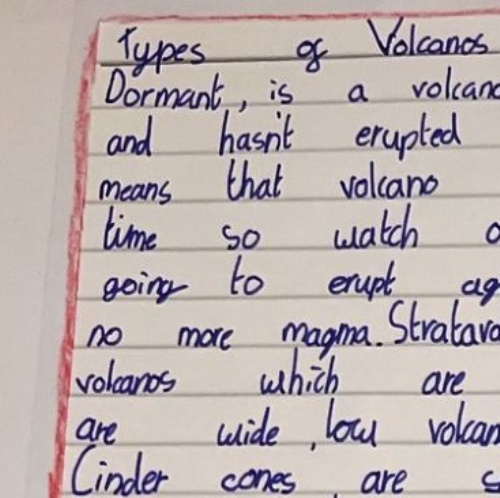 Types of Volcanos
Dormant, is a volcano
and hasn't erupted
means that volcano
time so watch
going to erupt
no more magma.
volcanos which are
are wide, low
Cinder cones are